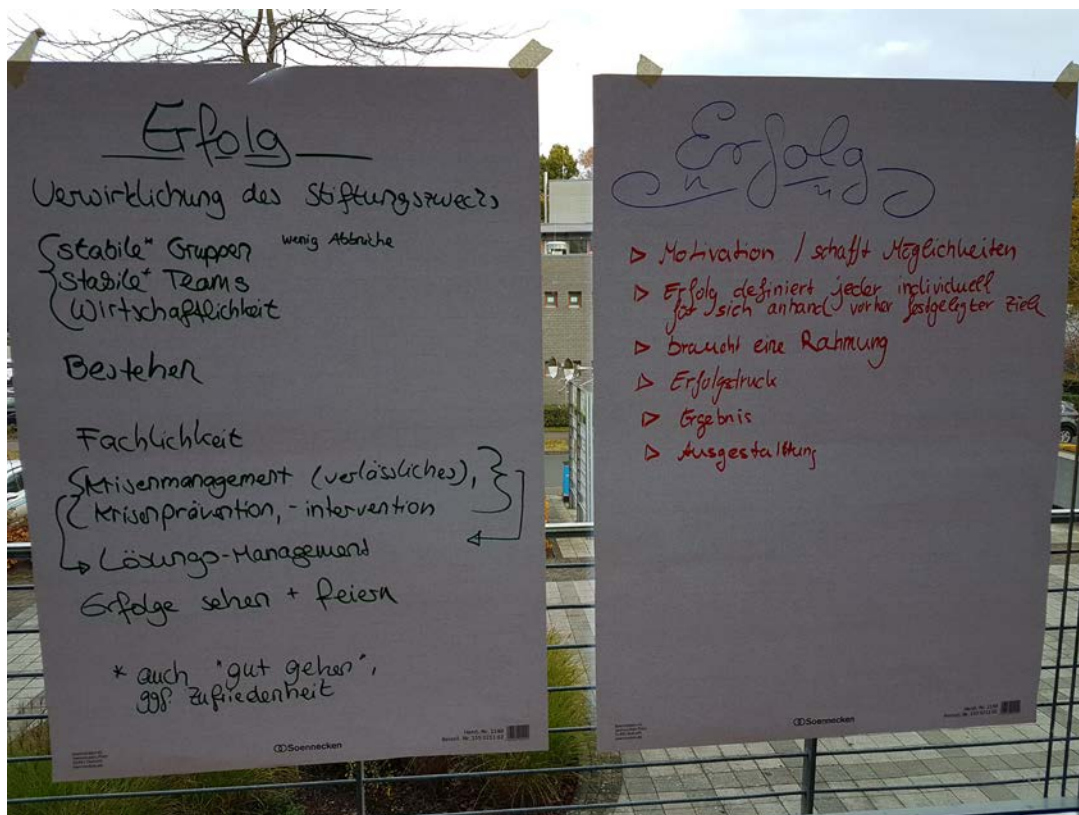 Erfolg
Verwirklichung des Stiftungszwecks
stabile* Gruppen wenig Abbrüche
stabile* Teams
Wirtschaftlichkeit
Bestehen
Fachlichkeit
Krisenmanagement (verlässliches),
Krisenprävention, -intervention
Lösungs-Management
Erfolge sehen + feiern
* auch "gut gehen",
ggf. Zufriedenheit
Soennecken
Erfolg
▷ Motivation / schafft Möglichkeiten
▷ Erfolg definiert jeder individuell
für sich anhand vorher festgelegter Ziele
▷ braucht eine Rahmung
▷ Erfolgsdruck
▷ Ergebnis
▷ Ausgestaltung
Soennecken